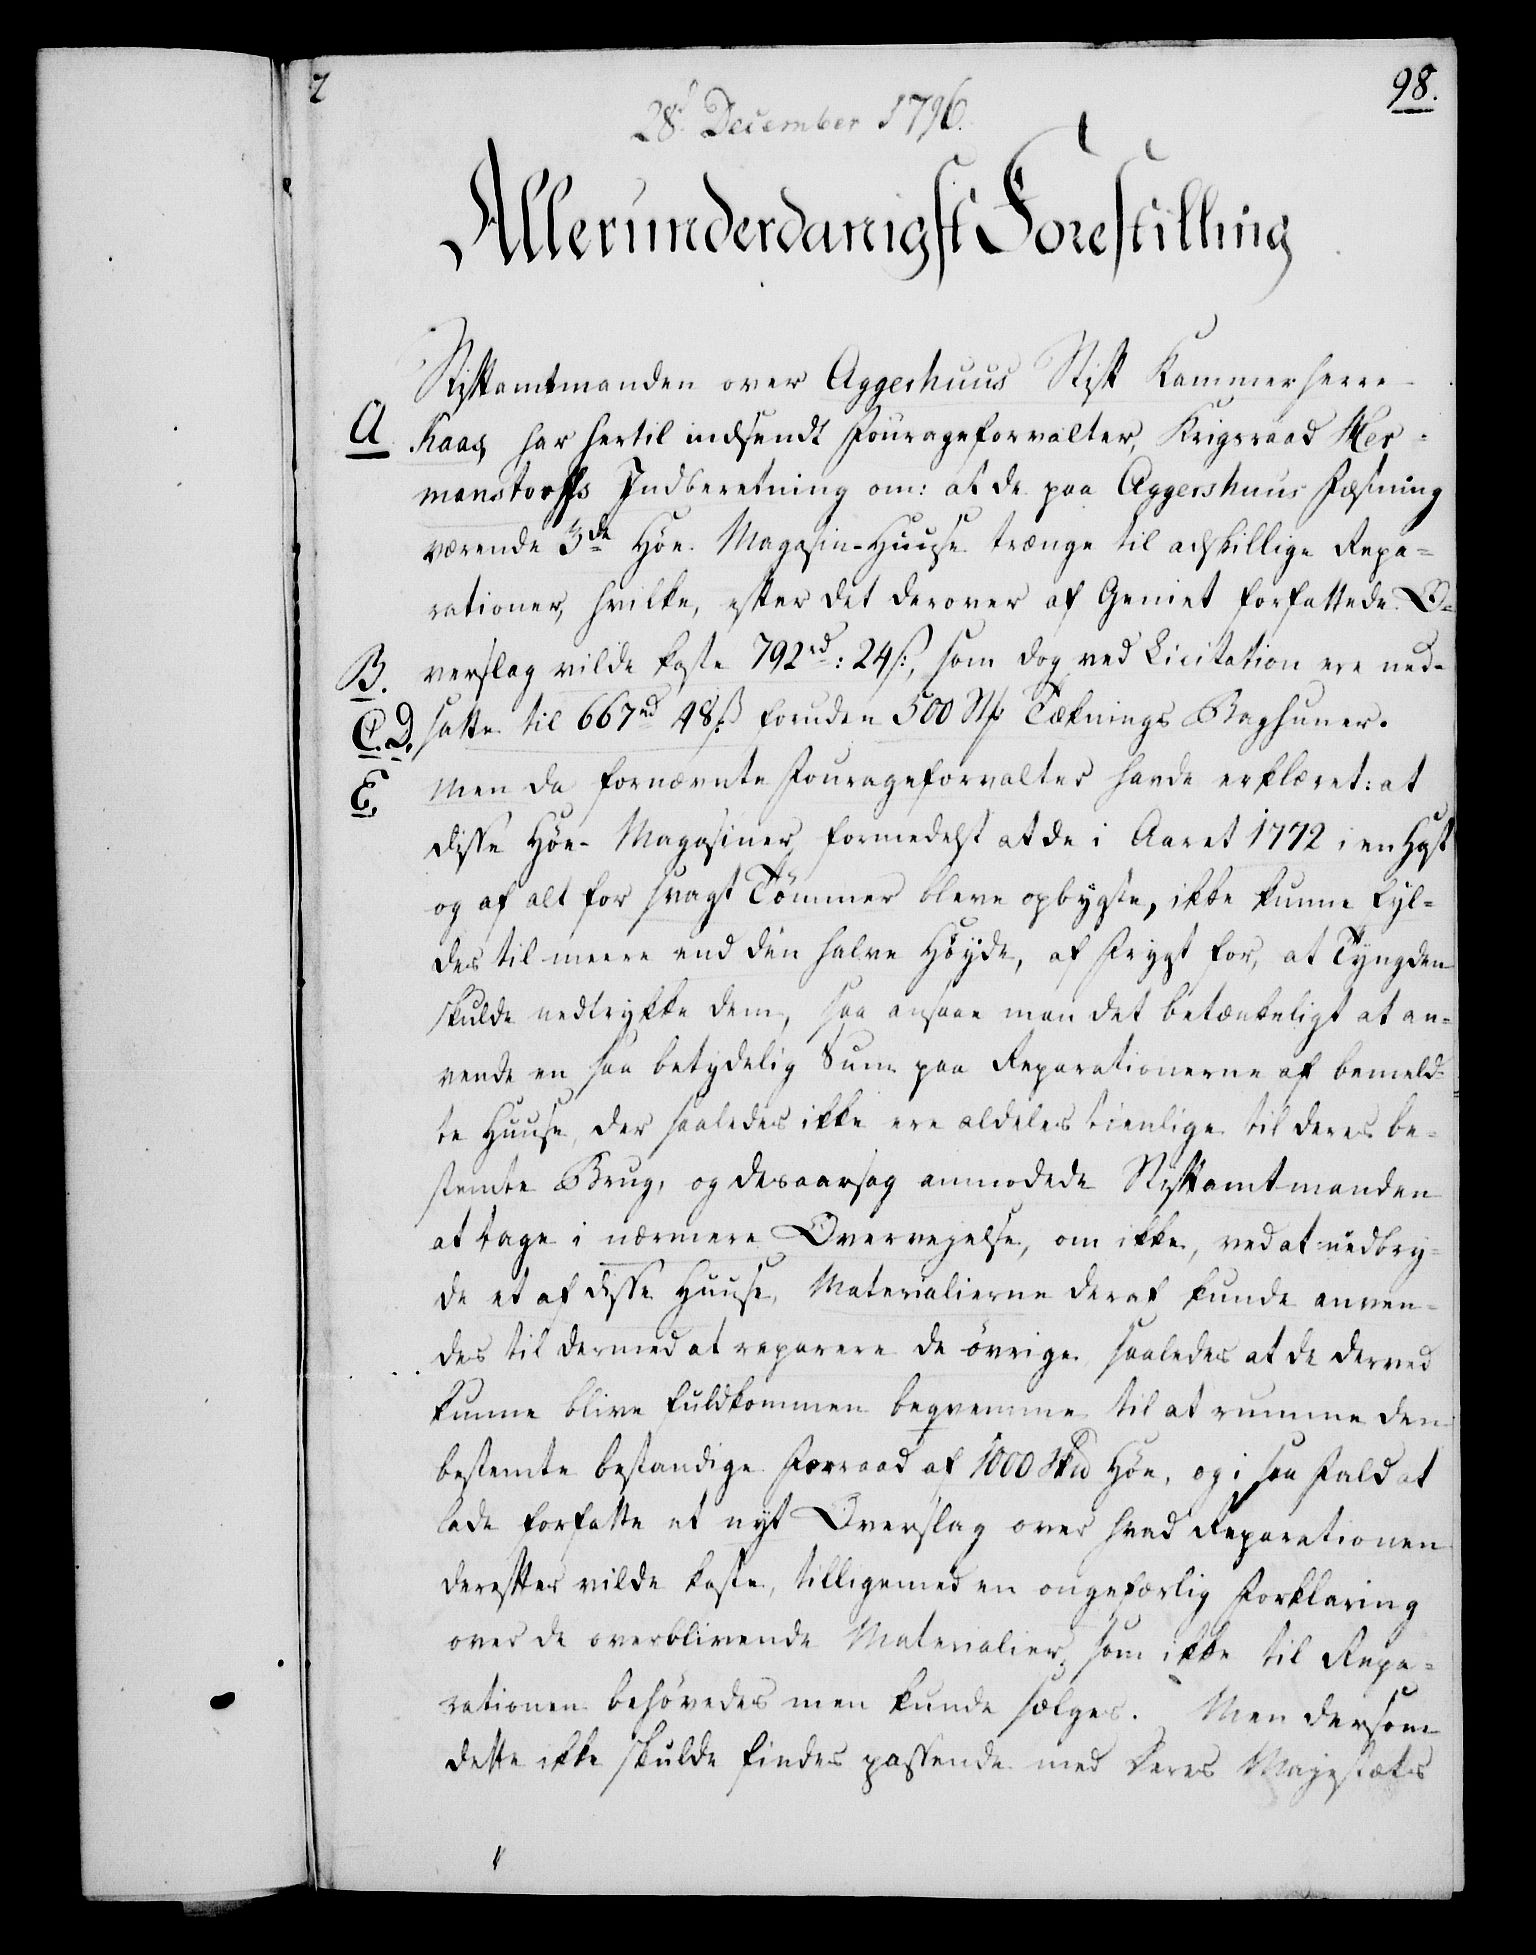 98.
28d December 1796.
Allerunderdanigst Forestilling
Stiftamtmanden over Aggerhuus Stift Kammerherre
A Kaas, har hertil indsendt Fourageforvalter, Krigsraad Her-
manstorffs Indberetning om: at de paa Aggershuus Fæstning
værende 3de Höe-Magasin-Huuse trænge til adskillige Repa-
rationer, hvilke, efter det derover af Geniet forfattede O-
B. verslag vilde koste 792rd: 24ß, som dog ved Licitation ere ned-
C. D. satte til 667rd 48ß foruden 500 Stk Tæknings Baghuner.
E. Men da fornævnte Fourageforvalter havde erklæret: at
disse Höe-Magasiner, formedelst at de i Aaret 1772 i en Hast
og af alt for svagt Tömmer bleve opbygte, ikke kunne fyl-
des til meere end den halve Höyde, af Frygt for, at Tyngden
skulde nedtrykke dem, saa ansaae man det betænkeligt at an-
vende en saa betydelig Sum paa Reparationerne af bemeld-
te Huuse, der saaledes ikke ere aldeles tienlige til deres be-
stemte Brug, og desaarsag anmodede Stiftamtmanden
at tage i nærmere Overvejelse, om ikke, ved at nedbry-
de et af disse Huuse, Materialierne deraf kunde anven-
des til dermed at reparere de övrige saaledes at de derved
kunne blive fuldkommen beqvemme til at rumme den
bestemte bestandige Forraad af 1000 Skd Höe, og i saa Fald at
lade forfatte et nyt Overslag over hvad Reparationen
derefter vilde koste, tilligemed en ongefærlig Forklaring
over de overblivende Materialier, som ikke til Repa-
rationen behövedes men kunde sælges. Men dersom
dette ikke skulde findes passende med Deres Majestæts